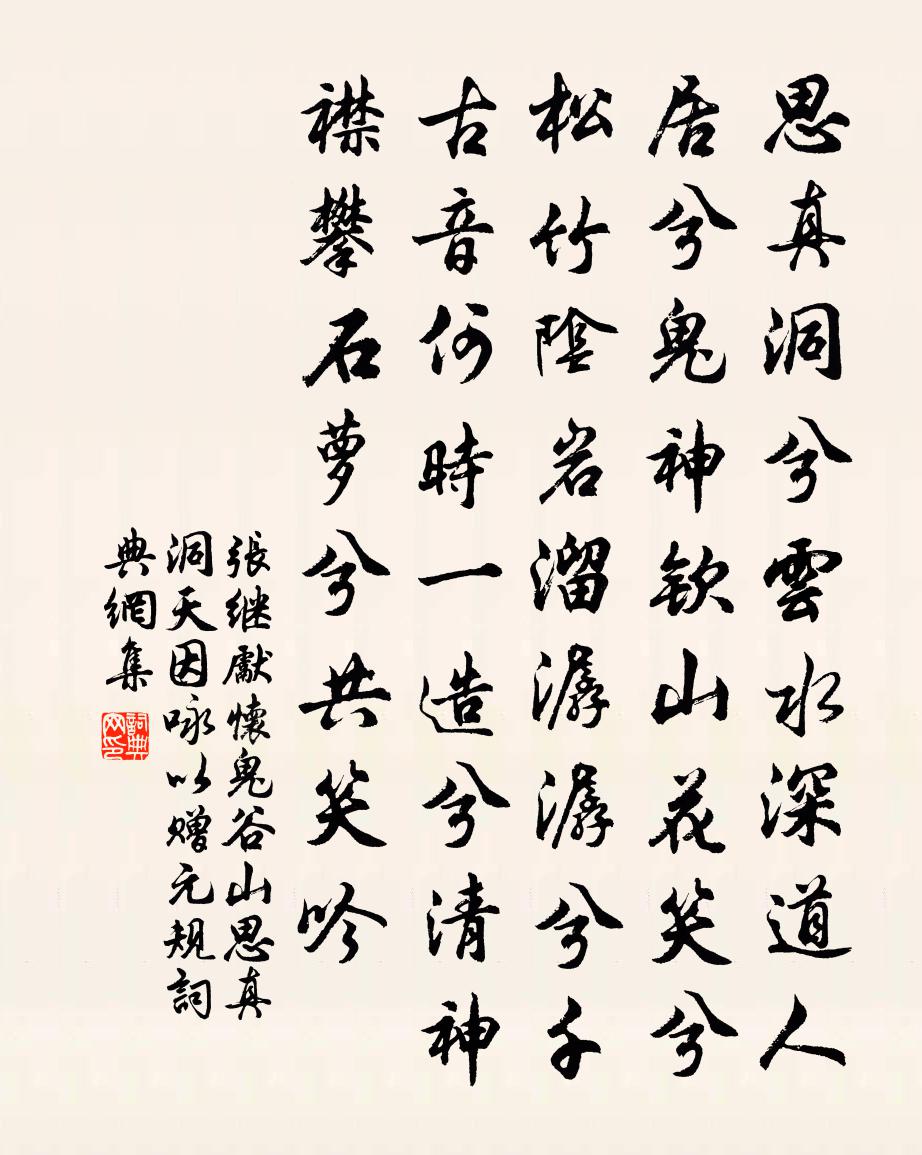 思真洞兮雲水深道人
居兮鬼神欽山花笑兮
松竹陰岩溜潺潺兮千
古音何時一造兮清神
襟攀石萝兮共笑吟
張继獻懷鬼谷山思真
洞天因咏以赠元規詞
典網集
詞典
网印